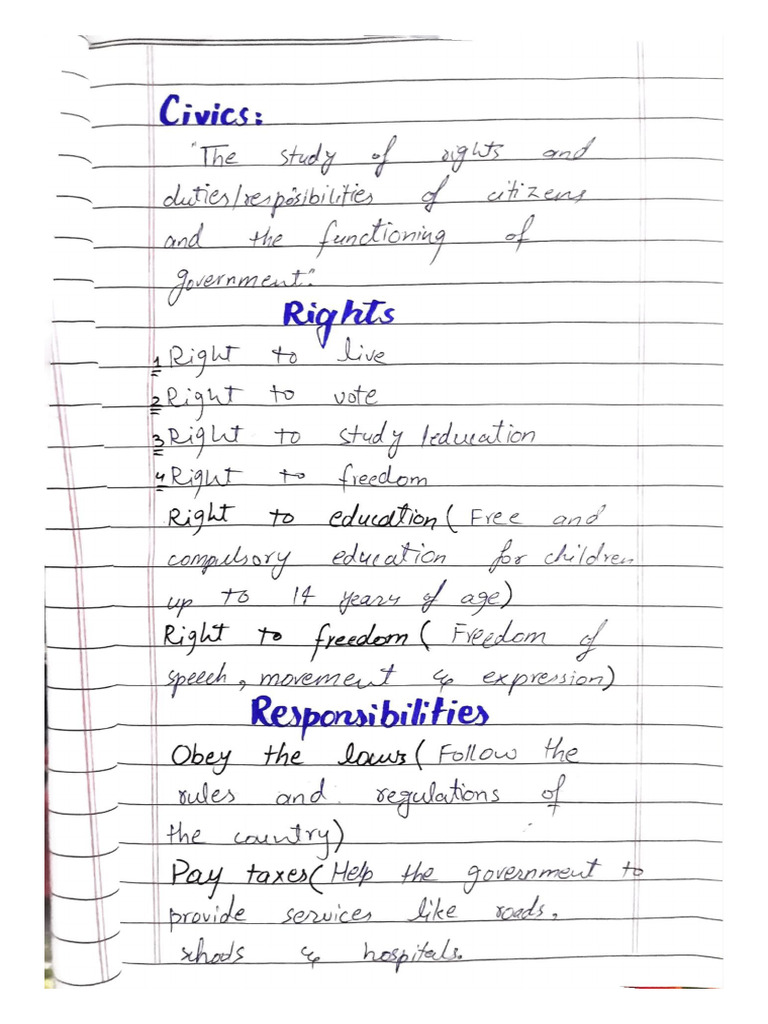 Civics:
"The study of rights and
duties/resposibilities of citizens
and the functioning of
government".
Rights
1 Right to live
2 Right to vote
3 Right to study /education
4 Right to freedom
Right to education ( Free and
compulsory education for children
up to 14 years of age)
Right to freedom ( Freedom of
speech, movement & expression)
Responsibilities
Obey the laws ( Follow the
rules and regulations of
the country)
Pay taxes ( Help the government to
provide services like roads,
schools & hospitals.